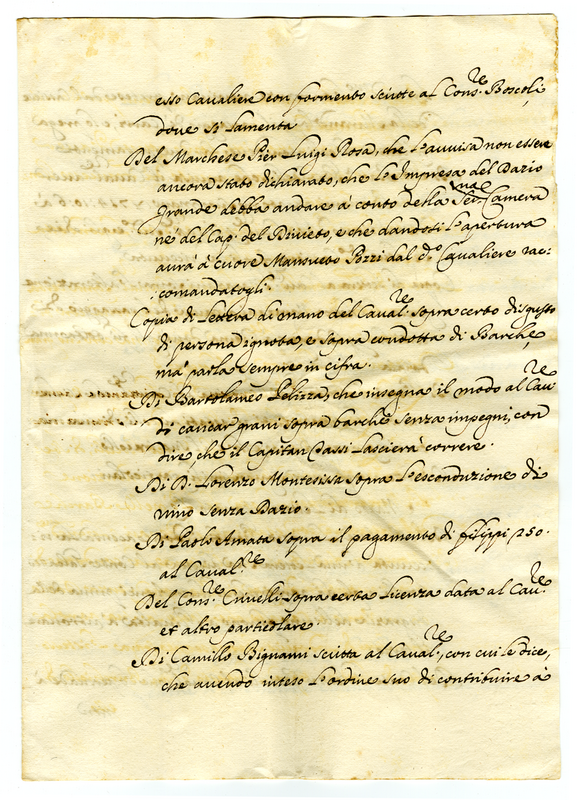 esso Cavaliere con formento scivte al Cons.re Boscoli,
dove si lamenta
Del Marchese Pier Luigi Rosa, che l'avvisa non essere
ancora stato dichiarato, che l'Impresa del Dazio
Grande debba andare à conto della Ser.ma Camera
nè del Cap. del Divieto, e che dandosi l'apertura
aurà à cuore Mansueto Pozzi dal d.o Cavaliere rac=
comandatogli.
Copia di Lettera di mano del Caual.re sopra certo disgusto
di persona ignota, e sopra condotta di Barche,
mà parla sempre in cifra.
Di Bartolameo Pelizza, che insegna il modo al Cau.re
di caricar grani sopra barche senza impegni, con
dire, che il Capitan Passi lascierà correre.
Di D. Lorenzo Montesissa sopra l'esconduzione di
vino senza Dazio.
Di Paolo Amata sopra il pagamento di filippi 250.
al Caval.re
Del Cons.re Crivelli sopra certa Licenza data al Cau.re
et altro particolare.
Di Camillo Bignami scritta al Caual.re, con cui le dice,
che auendo inteso l'ordine suo di contribuire à